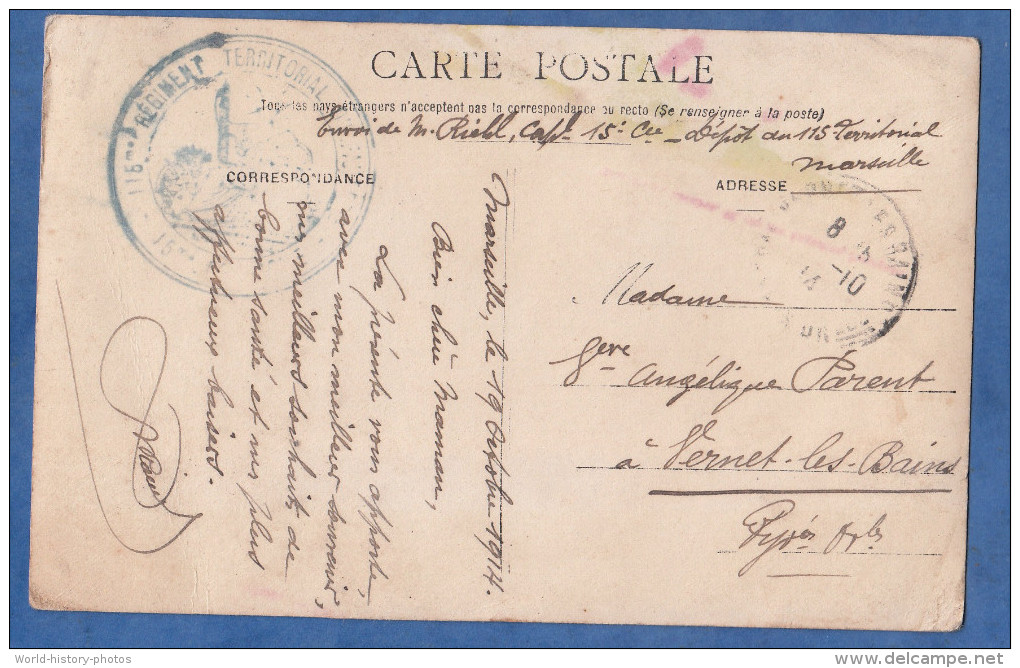 CARTE POSTALE
Tous les pays étrangers n'acceptent pas la correspondance au recto (Se renseigner à la poste)
Envoi de M. Riehl, Capl 15e Cie - Dépôt du 115 Territorial
Marseille
CORRESPONDANCE
ADRESSE
RÉGIMENT TERRITORIAL
Marseille, le 19 Octobre 1914.
Bien chère Maman,
La présente vous apporte,
avec mon meilleur souvenir,
mes meilleurs souhaits de
bonne santé et mes plus
affectueux baisers.
Madame
Vve Angélique Parent
à Vernet-les-Bains
Pyrées Orles
8
-10
14
World-history-photos